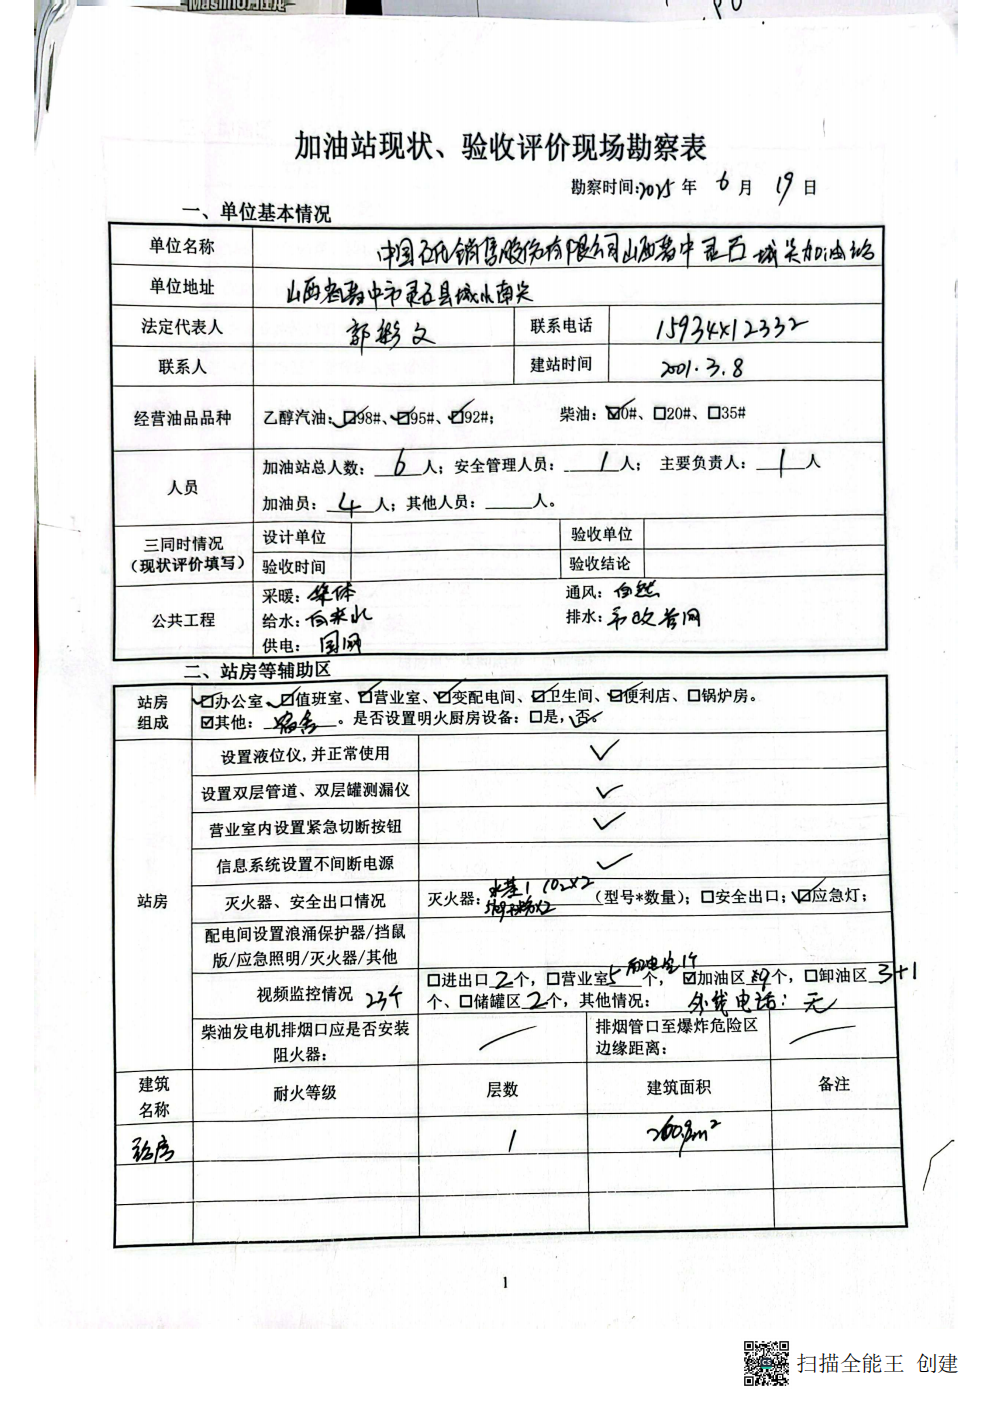 加油站现状、验收评价现场勘察表
勘察时间:2025 年 6 月 19 日
一、单位基本情况
单位名称 中国石化销售股份有限公司山西晋中灵石城关加油站
单位地址 山西省晋中市灵石县城水南关
法定代表人 郭 文 联系电话 15934412332
联系人 建站时间 2001.3.8
经营油品品种 乙醇汽油:☑98#、☑95#、☑92#; 柴油:☑0#、□20#、□35#
人员 加油站总人数: 6 人; 安全管理人员: 1 人; 主要负责人: 1 人
加油员: 4 人; 其他人员: 人。
三同时情况(现状评价填写) 设计单位 验收单位
验收时间 验收结论
公共工程 采暖: 集体 通风: 自然
给水: 自来水 排水: 市政管网
供电: 国网
二、站房等辅助区
站房组成 ☑办公室、☑值班室、☑营业室、☑变配电间、☑卫生间、☑便利店、□锅炉房。
☑其他: 宿舍 。是否设置明火厨房设备: □是, 否。
站房 设置液位仪,并正常使用 ✓
设置双层管道、双层罐测漏仪 ✓
营业室内设置紧急切断按钮 ✓
信息系统设置不间断电源 ✓
灭火器、安全出口情况 灭火器: 水基1 CO2×2 (型号*数量); □安全出口; ☑应急灯;
配电间设置浪涌保护器/挡鼠
版/应急照明/灭火器/其他
视频监控情况 23个 □进出口 2 个, □营业室 5 个, 配电室1个 ☑加油区 9 个, □卸油区 3+1
个、□储罐区 2 个, 其他情况: 外线电话: 无
柴油发电机排烟口应是否安装
阻火器: 排烟管口至爆炸危险区
边缘距离:
建筑名称 耐火等级 层数 建筑面积 备注
站房 1 260.9m²
1
扫描全能王 创建